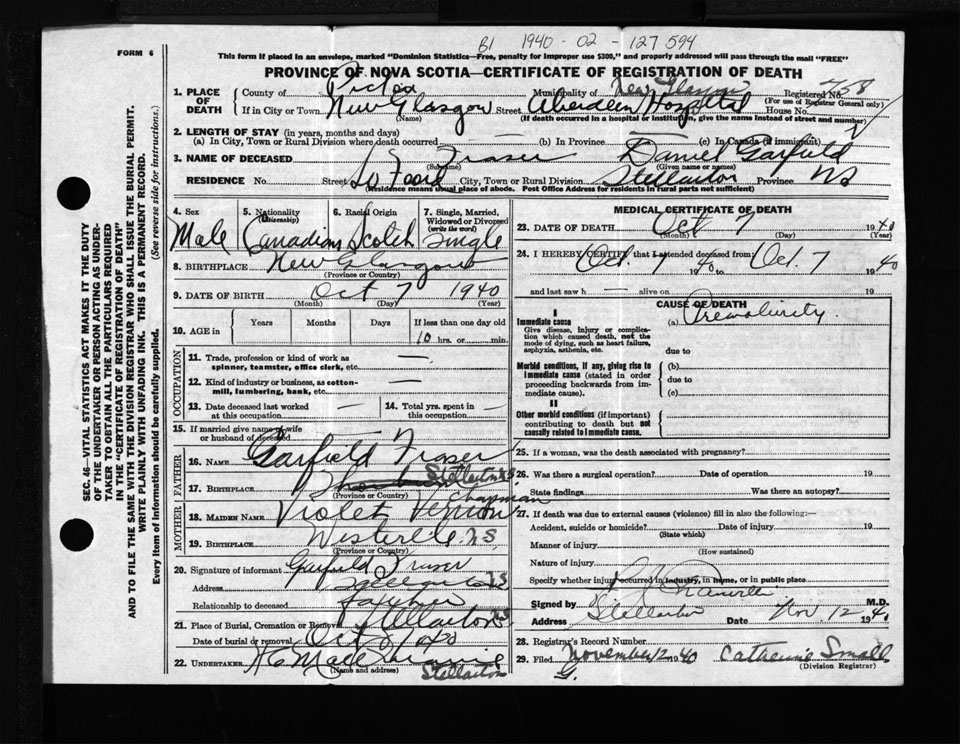 B1 1940-02-127594
FORM 6
This form if placed in an envelope, marked "Dominion Statistics—Free, penalty for improper use $300," and properly addressed will pass through the mail "FREE"
PROVINCE OF NOVA SCOTIA—CERTIFICATE OF REGISTRATION OF DEATH
1. PLACE OF DEATH
County of Pictou Municipality of New Glasgow Registered No. 758
(For use of Registrar General only)
If in City or Town New Glasgow Street Aberdeen Hospital House No.
(Name) (If death occurred in a hospital or institution, give the name instead of street and number)
2. LENGTH OF STAY (in years, months and days)
(a) In City, Town or Rural Division where death occurred — (b) In Province — (c) In Canada (if immigrant)
3. NAME OF DECEASED Fraser Daniel Garfield
(Surname) (Given name or names)
RESIDENCE No. Street So Foord City, Town or Rural Division Stellarton Province NS
(Residence means usual place of abode. Post Office Address for residents in rural parts not sufficient)
4. Sex Male
5. Nationality (Citizenship) Canadian
6. Racial Origin Scotch
7. Single, Married, Widowed or Divorced (write the word) Single
8. BIRTHPLACE New Glasgow
(Province or Country)
9. DATE OF BIRTH Oct 7 1940
(Month) (Day) (Year)
10. AGE in Years Months Days If less than one day old
10 hrs. or min.
OCCUPATION
11. Trade, profession or kind of work as spinner, teamster, office clerk, etc. —
12. Kind of industry or business, as cotton-mill, lumbering, bank, etc. —
13. Date deceased last worked at this occupation —
14. Total yrs. spent in this occupation —
15. If married give name of wife or husband of deceased
FATHER
16. NAME Garfield Fraser
17. BIRTHPLACE Stellarton NS
(Province or Country)
MOTHER
18. MAIDEN NAME Violet Vernon Chapman
19. BIRTHPLACE Westville NS
(Province or Country)
20. Signature of informant Garfield Fraser
Address Stellarton NS
Relationship to deceased father
21. Place of Burial, Cremation or Removal Stellarton NS
Date of burial or removal Oct 8 1940
22. UNDERTAKER
(Name and address)
Stellarton
MEDICAL CERTIFICATE OF DEATH
23. DATE OF DEATH Oct 7 1940
(Month) (Day) (Year)
24. I HEREBY CERTIFY that I attended deceased from: Oct. 7 1940 to Oct. 7 1940
and last saw h — alive on 19
CAUSE OF DEATH
I
Immediate cause (a) Prematurity
Give disease, injury or complication which caused death, not the mode of dying, such as heart failure, asphyxia, asthenia, etc.
due to
Morbid conditions, if any, giving rise to Immediate cause (stated in order proceeding backwards from immediate cause).
(b)
due to
(c)
II
Other morbid conditions (if important) contributing to death but not causally related to Immediate cause.
25. If a woman, was the death associated with pregnancy?
26. Was there a surgical operation? Date of operation 19
State findings Was there an autopsy?
27. If death was due to external causes (violence) fill in also the following:—
Accident, suicide or homicide? Date of injury 19
(State which)
Manner of injury
(How sustained)
Nature of injury
Specify whether injury occurred in industry, in home, or in public place
Signed by M.D.
Address Stellarton Date Nov 12 1940
28. Registrar's Record Number
29. Filed November 12 1940 Catherine Small
(Division Registrar)
SEC. 46—VITAL STATISTICS ACT MAKES IT THE DUTY
OF THE UNDERTAKER OR PERSON ACTING AS UNDER-
TAKER TO OBTAIN ALL THE PARTICULARS REQUIRED
IN THE "CERTIFICATE OF REGISTRATION OF DEATH"
AND TO FILE THE SAME WITH THE DIVISION REGISTRAR WHO SHALL ISSUE THE BURIAL PERMIT.
WRITE PLAINLY WITH UNFADING INK. THIS IS A PERMANENT RECORD.
Every item of information should be carefully supplied. (See reverse side for instructions.)